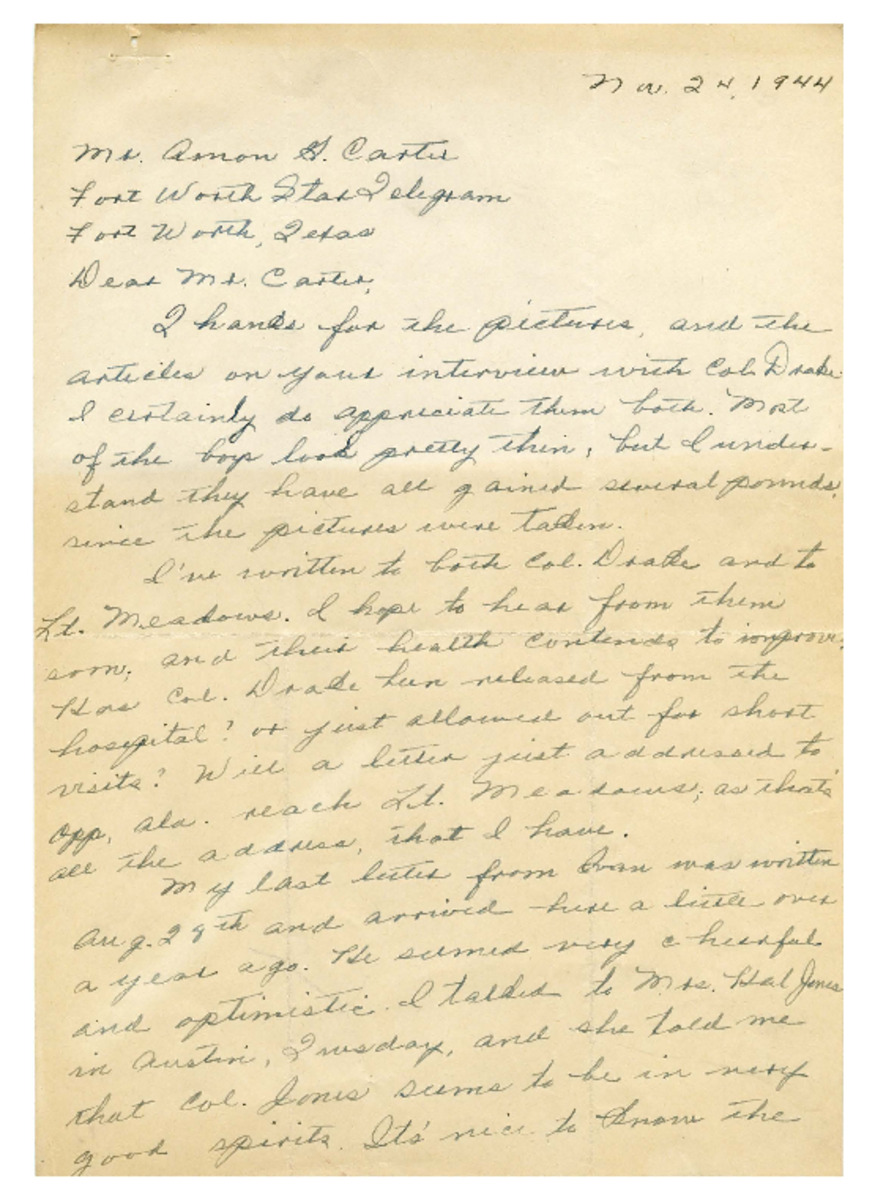 Nov. 24, 1944
Mr. Amon G. Carter
Fort Worth Star Telegram
Fort Worth, Texas
Dear Mr. Carter,
Thanks for the pictures, and the
articles on your interview with Col. Drake.
I certainly do appreciate them both. Most
of the boys look pretty thin, but I under-
stand they have all gained several pounds,
since the pictures were taken.
I've written to both Col. Drake and to
Lt. Meadows. I hope to hear from them
soon, and their health contends to improve.
Has Col. Drake been released from the
hospital? or just allowed out for short
visits? Will a letter just addressed to
Opp, Ala. reach Lt. Meadows, as that's
all the address, that I have.
My last letter from Ivan was written
Aug. 29th and arrived here a little over
a year ago. He seemed very cheerful
and optimistic. I talked to Mrs. Hal Jones
in Austin, Tuesday, and she told me
that Col. Jones seems to be in very
good spirits. It's nice to know the